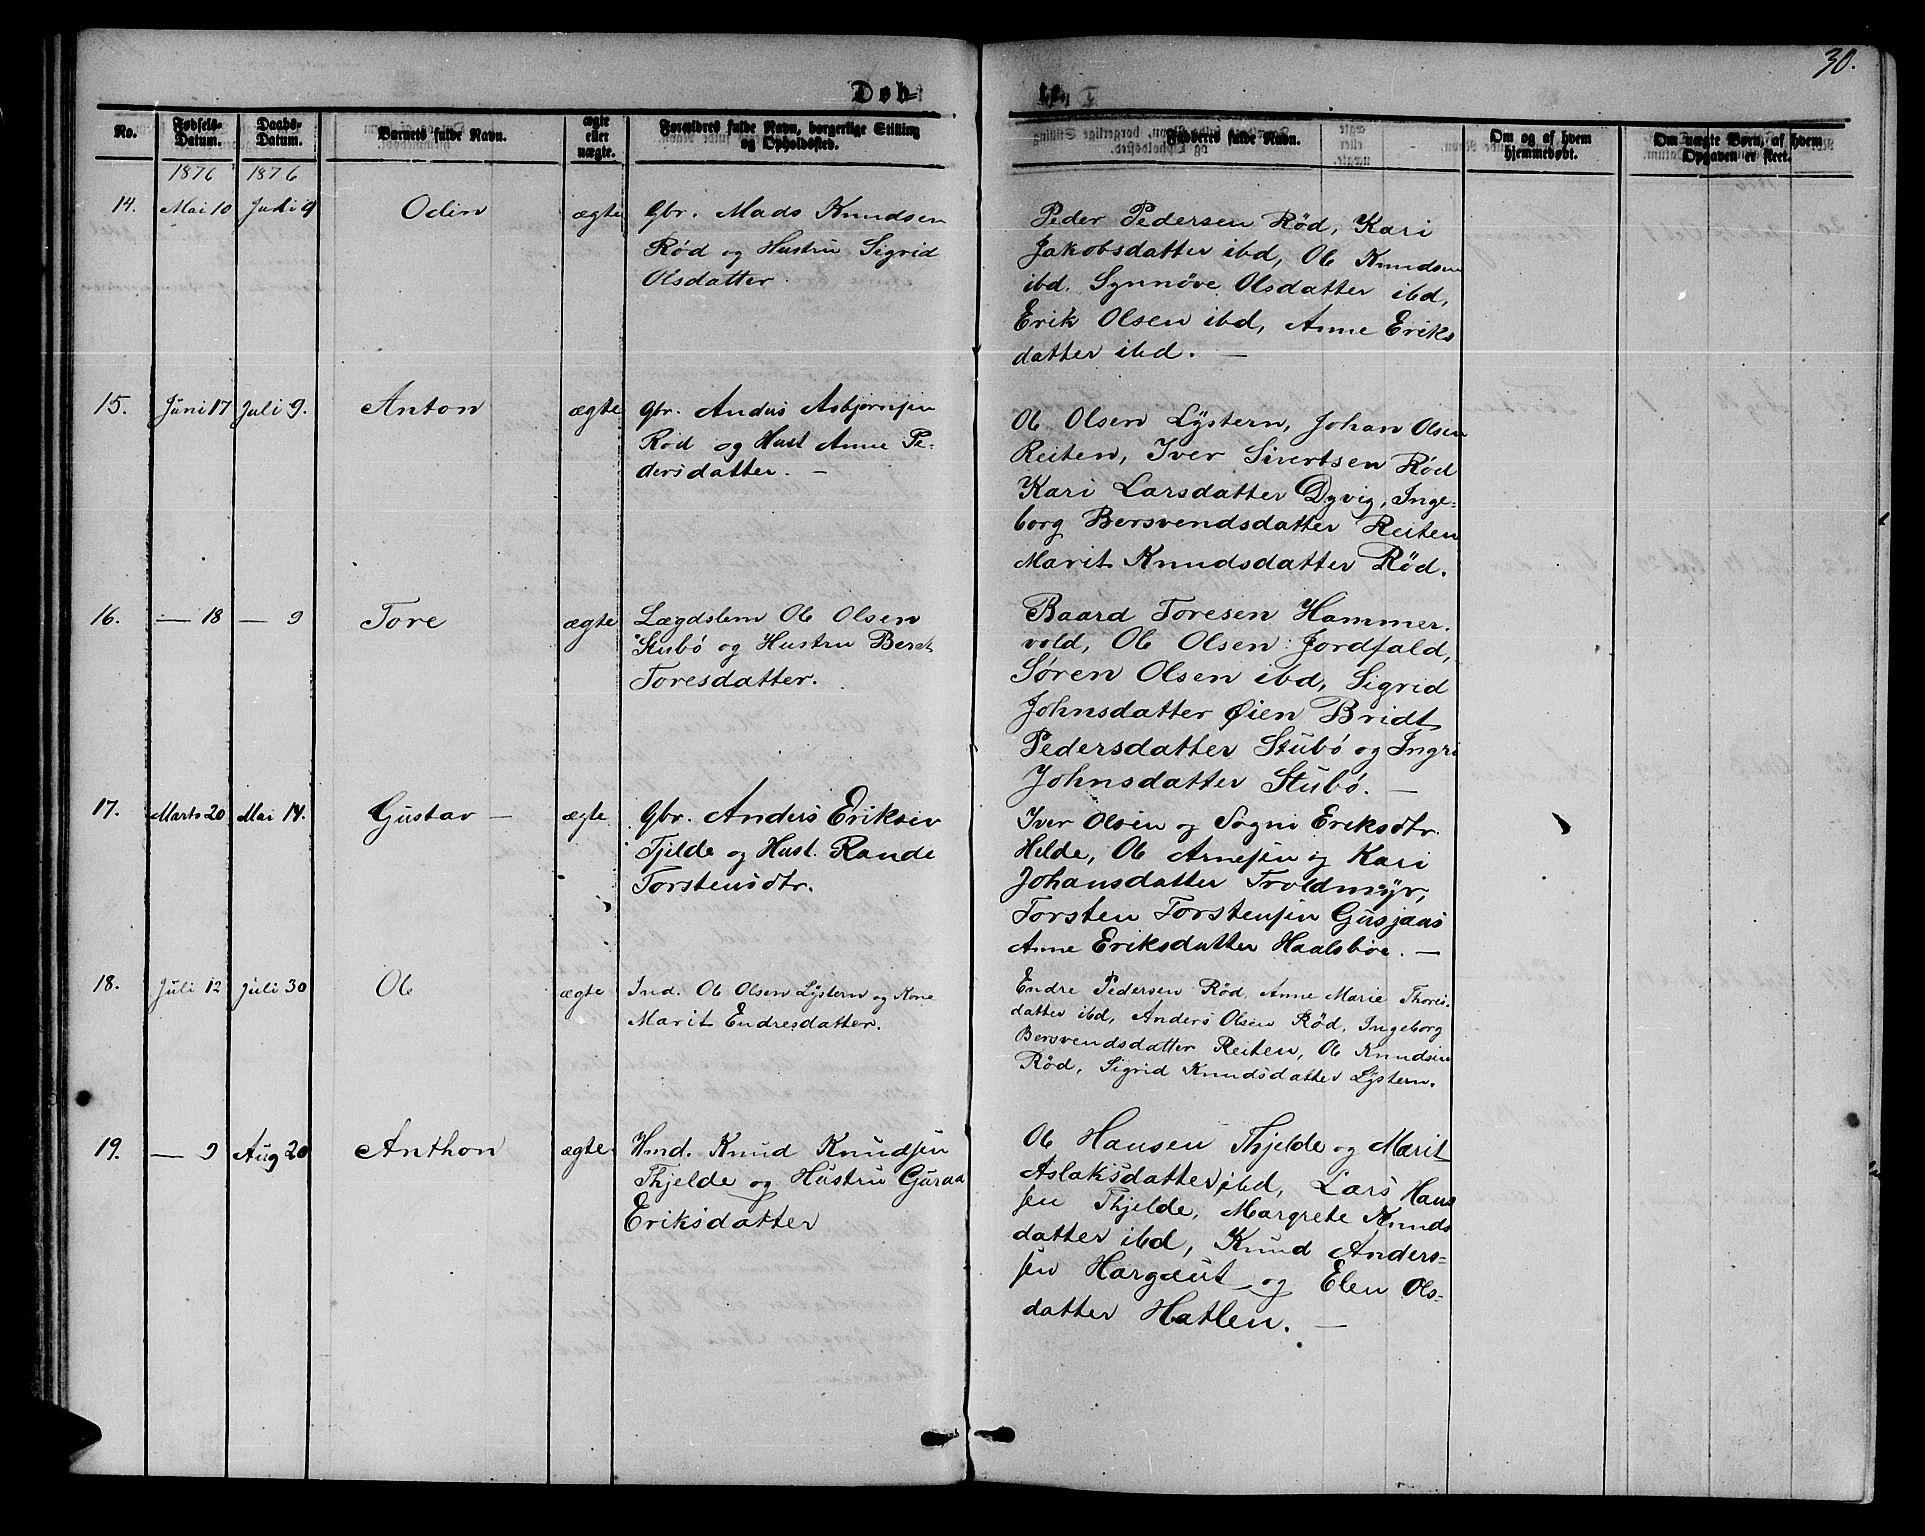 30.
Døb=
No.
Fødsels-
Datum.
Daabs-
Datum.
Barnets fulde Navn.
ægte
eller
uægte.
Forældres fulde Navn, borgerlige Stilling
og Opholdssted.
Fadderes fulde Navn.
Om og af hvem
hjemmedøbt.
Om uægte Børn, af hvem
Opgaven er skeet.
1876 1876
14. Mai 10 Juli 9 Odin ægte Gbr. Mads Knudsen
Rød og Hustru Sigrid
Olsdatter.
Peder Pedersen Rød, Kari
Jakobsdatter ibd, Ole Knudsen
ibd. Synnöve Olsdatter ibd,
Erik Olsen ibd, Anne Eriks
datter ibd. —
15. Juni 17 Juli 9. Anton ægte Gbr. Anders Asbjørnsen
Rød og Hust Anne Pe-
dersdatter. —
Ole Olsen Lystern, Johan Olsen
Reiten, Iver Sivertsen Rød
Kari Larsdatter Dyvig, Inge-
borg Bersvendsdatter Reiten
Marit Knudsdatter Rød.
16. — 18 — 9 Tore ægte Lægdslem Ole Olsen
Stubø og Hustru Beret
Toresdatter.
Baard Toresen Hammer-
vold, Ole Olsen Jordfald,
Søren Olsen ibd, Sigrid
Johnsdatter Øien Bridt
Pedersdatter Stubø og Ingri
Johnsdatter Stubø. —
17. Marts 20 Mai 14. Gustav — ægte Gbr. Anders Eriksen
Tjelde og Hust. Rande
Torstensdtr.
Iver Olsen og Sogni Eriksdtr.
Hilde, Ole Arnesen og Kari
Johansdatter Troldmyr,
Torsten Torstensen Gusjaas
Anne Eriksdatter Haalsböe. —
18. Juli 12 Juli 30 Ole ægte Ind. Ole Olsen Lystern og Kone
Marit Endresdatter.
Endre Pedersen Rød, Anne Marie Thores-
datter ibd, Anders Olsen Rød, Ingeborg
Bersvendsdatter Reiten, Ole Knudsen
Rød, Sigrid Knudsdatter Lystern.
19. — 9 Aug 20 Anthon ægte Hmd. Knud Knudsen
Thjelde og Hustru Guraa
Eriksdatter
Ole Hansen Thjelde og Marit
Aslaksdatter ibd, Lars Han
sen Thjelde, Margrete Knuds
datter ibd, Knud Anders=
sen Hargaut og Elen Ols=
datter Hatlen. —